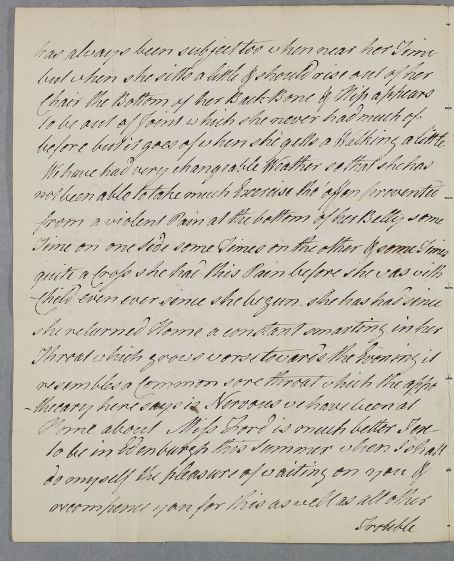 has always been subject too when near her Time
but when she sitts a little & should rise out of her
Chair the Bottom of her Back Bone & Hip appears
to be out of Joint which she never had much of
before but it goes of when she getts a Walking a little
We have had very changeable Weather so that she has
not been able to take much Exercise tho' often prevented
from a violent Pain at the bottom of her Belly some
Time on one side some Times on the other & some Times
quite a Cross she had this Pain before she was with
Child even ever since she begun. she has had since
she returned Home a constant smarting in her
Throat which grows worse towards the Evening it
resembles a Common sore throat which the appo
-thecary here says is Nervous we have been at
Home about Miss Ford is much better I
to be in Edenburgh this summer when I shall
do myself the pleasure of waiting on you &
recompence you for this as well as all other
Trouble